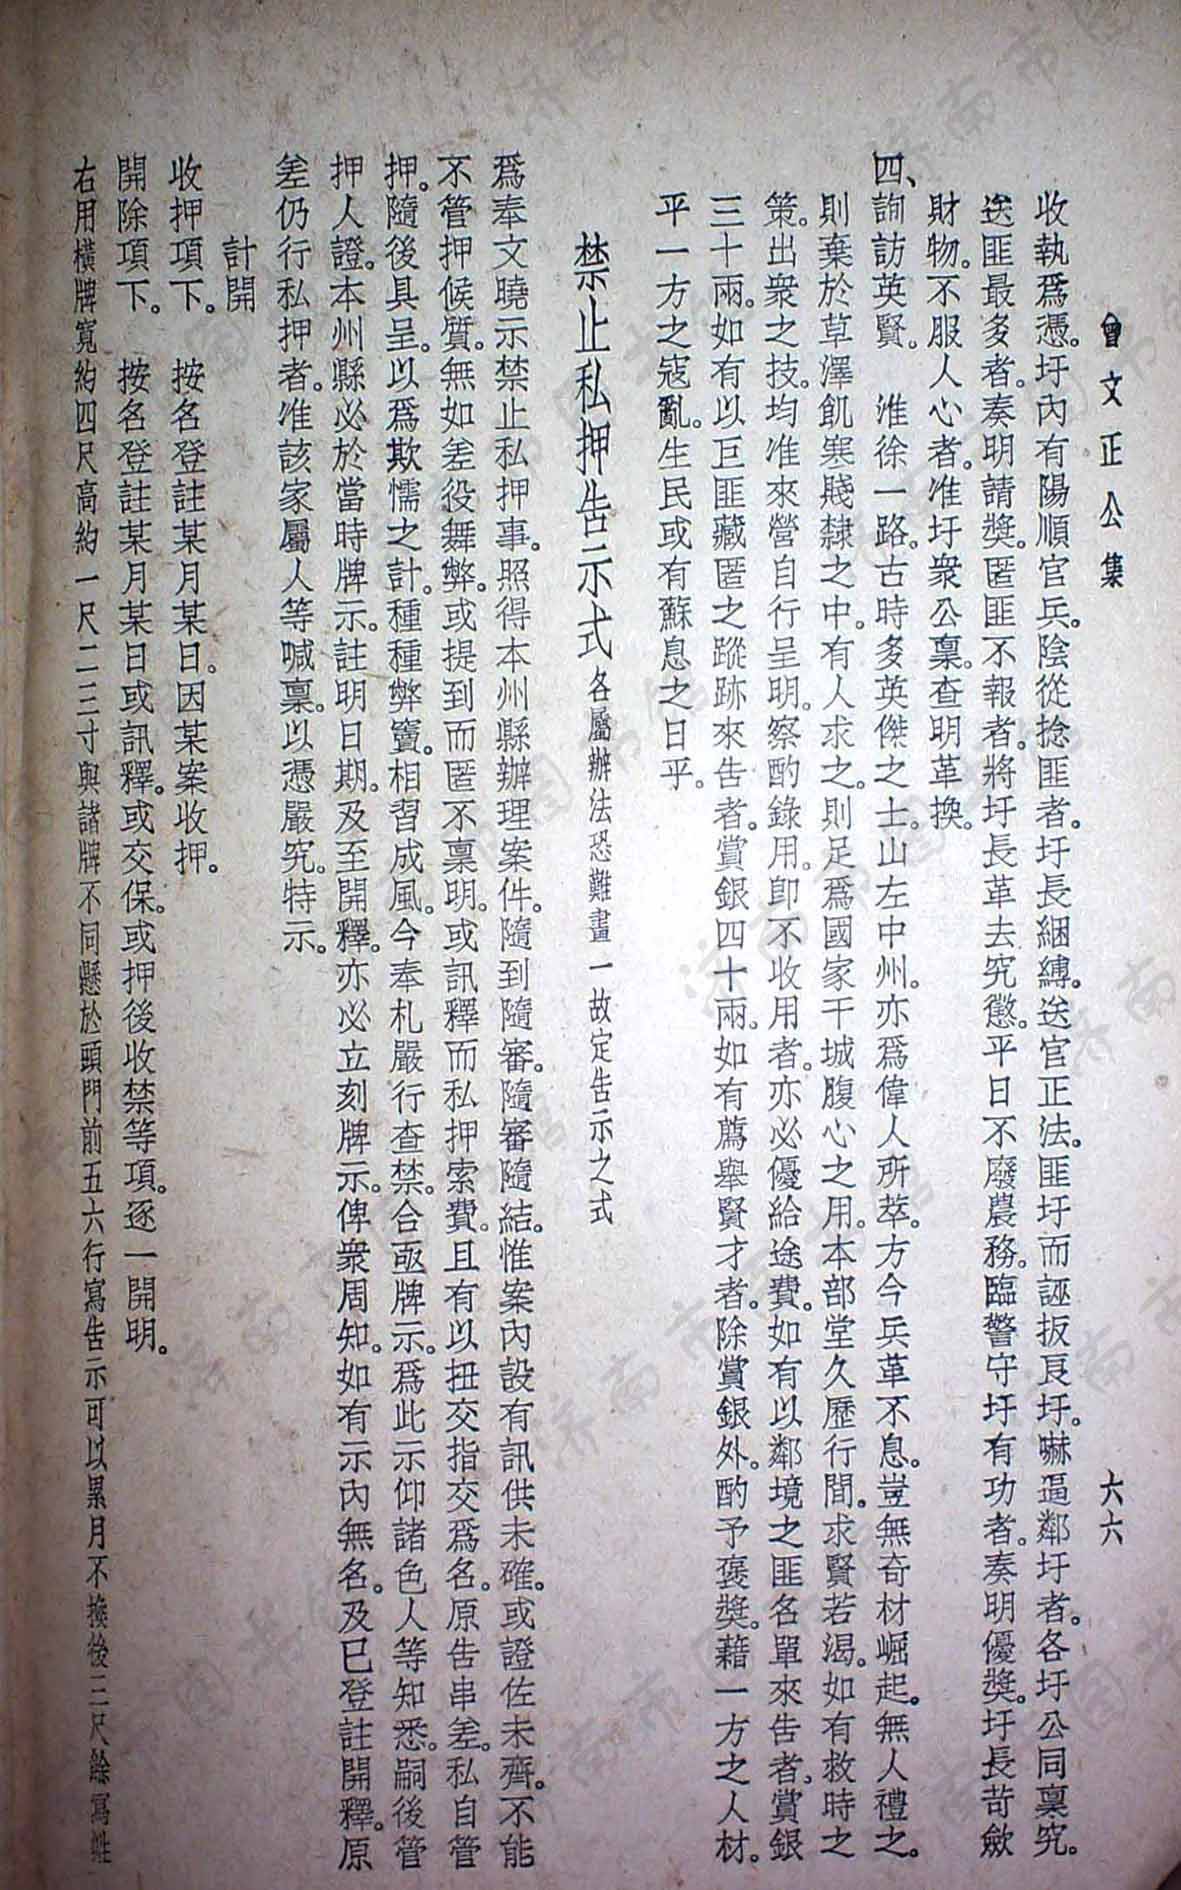 曾文正公集 六六
收執爲憑。圩內有陽順官兵。陰從捻匪者。圩長綑縛。送官正法。匪圩而誣扳良圩。嚇逼鄰圩者。各圩公同稟究。
送匪最多者。奏明請獎。匿匪不報者。將圩長革去究懲。平日不廢農務。臨警守圩有功者。奏明優獎。圩長苛斂
財物。不服人心者。准圩衆公稟。查明革換。
四、詢訪英賢。 淮徐一路。古時多英傑之士。山左中州。亦爲偉人所萃。方今兵革不息。豈無奇材崛起。無人禮之。
則棄於草澤飢寒賤隸之中。有人求之。則足爲國家干城腹心之用。本部堂久歷行間。求賢若渴。如有救時之
策。出衆之技。均准來營自行呈明。察酌錄用。卽不收用者。亦必優給途費。如有以鄰境之匪名單來告者。賞銀
三十兩。如有以巨匪藏匿之蹤跡來告者。賞銀四十兩。如有薦舉賢才者。除賞銀外。酌予褒獎。藉一方之人材。
平一方之寇亂。生民或有蘇息之日乎。
禁止私押告示式 各屬辦法恐難畫一故定告示之式
爲奉文曉示禁止私押事。照得本州縣辦理案件。隨到隨審。隨審隨結。惟案內設有訊供未確。或證佐未齊。不能
不管押候質。無如差役舞弊。或提到而匿不稟明。或訊釋而私押索費。且有以扭交指交爲名。原告串差。私自管
押。隨後具呈。以爲欺懦之計。種種弊竇。相習成風。今奉札嚴行查禁。合亟牌示。爲此示仰諸色人等知悉。嗣後管
押人證。本州縣必於當時牌示。註明日期。及至開釋。亦必立刻牌示。俾衆周知。如有示內無名。及已登註開釋。原
差仍行私押者。准該家屬人等喊稟。以憑嚴究。特示。
計開
收押項下。 按名登註某月某日。因某案收押。
開除項下。 按名登註某月某日或訊釋。或交保。或押後收禁等項。逐一開明。
右用橫牌寬約四尺高約一尺二三寸與諸牌不同懸於頭門前五六行寫告示可以累月不換後三尺餘寫姓